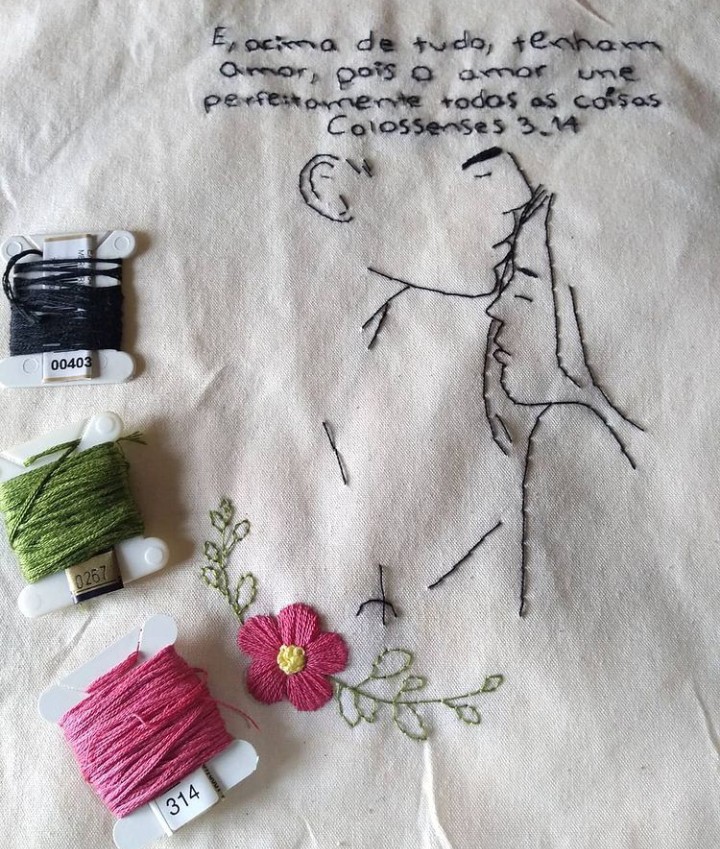 E, acima de tudo, tenham
amor, pois o amor une
perfeitamente todas as coisas
Colossenses 3,14
00403
0267
314